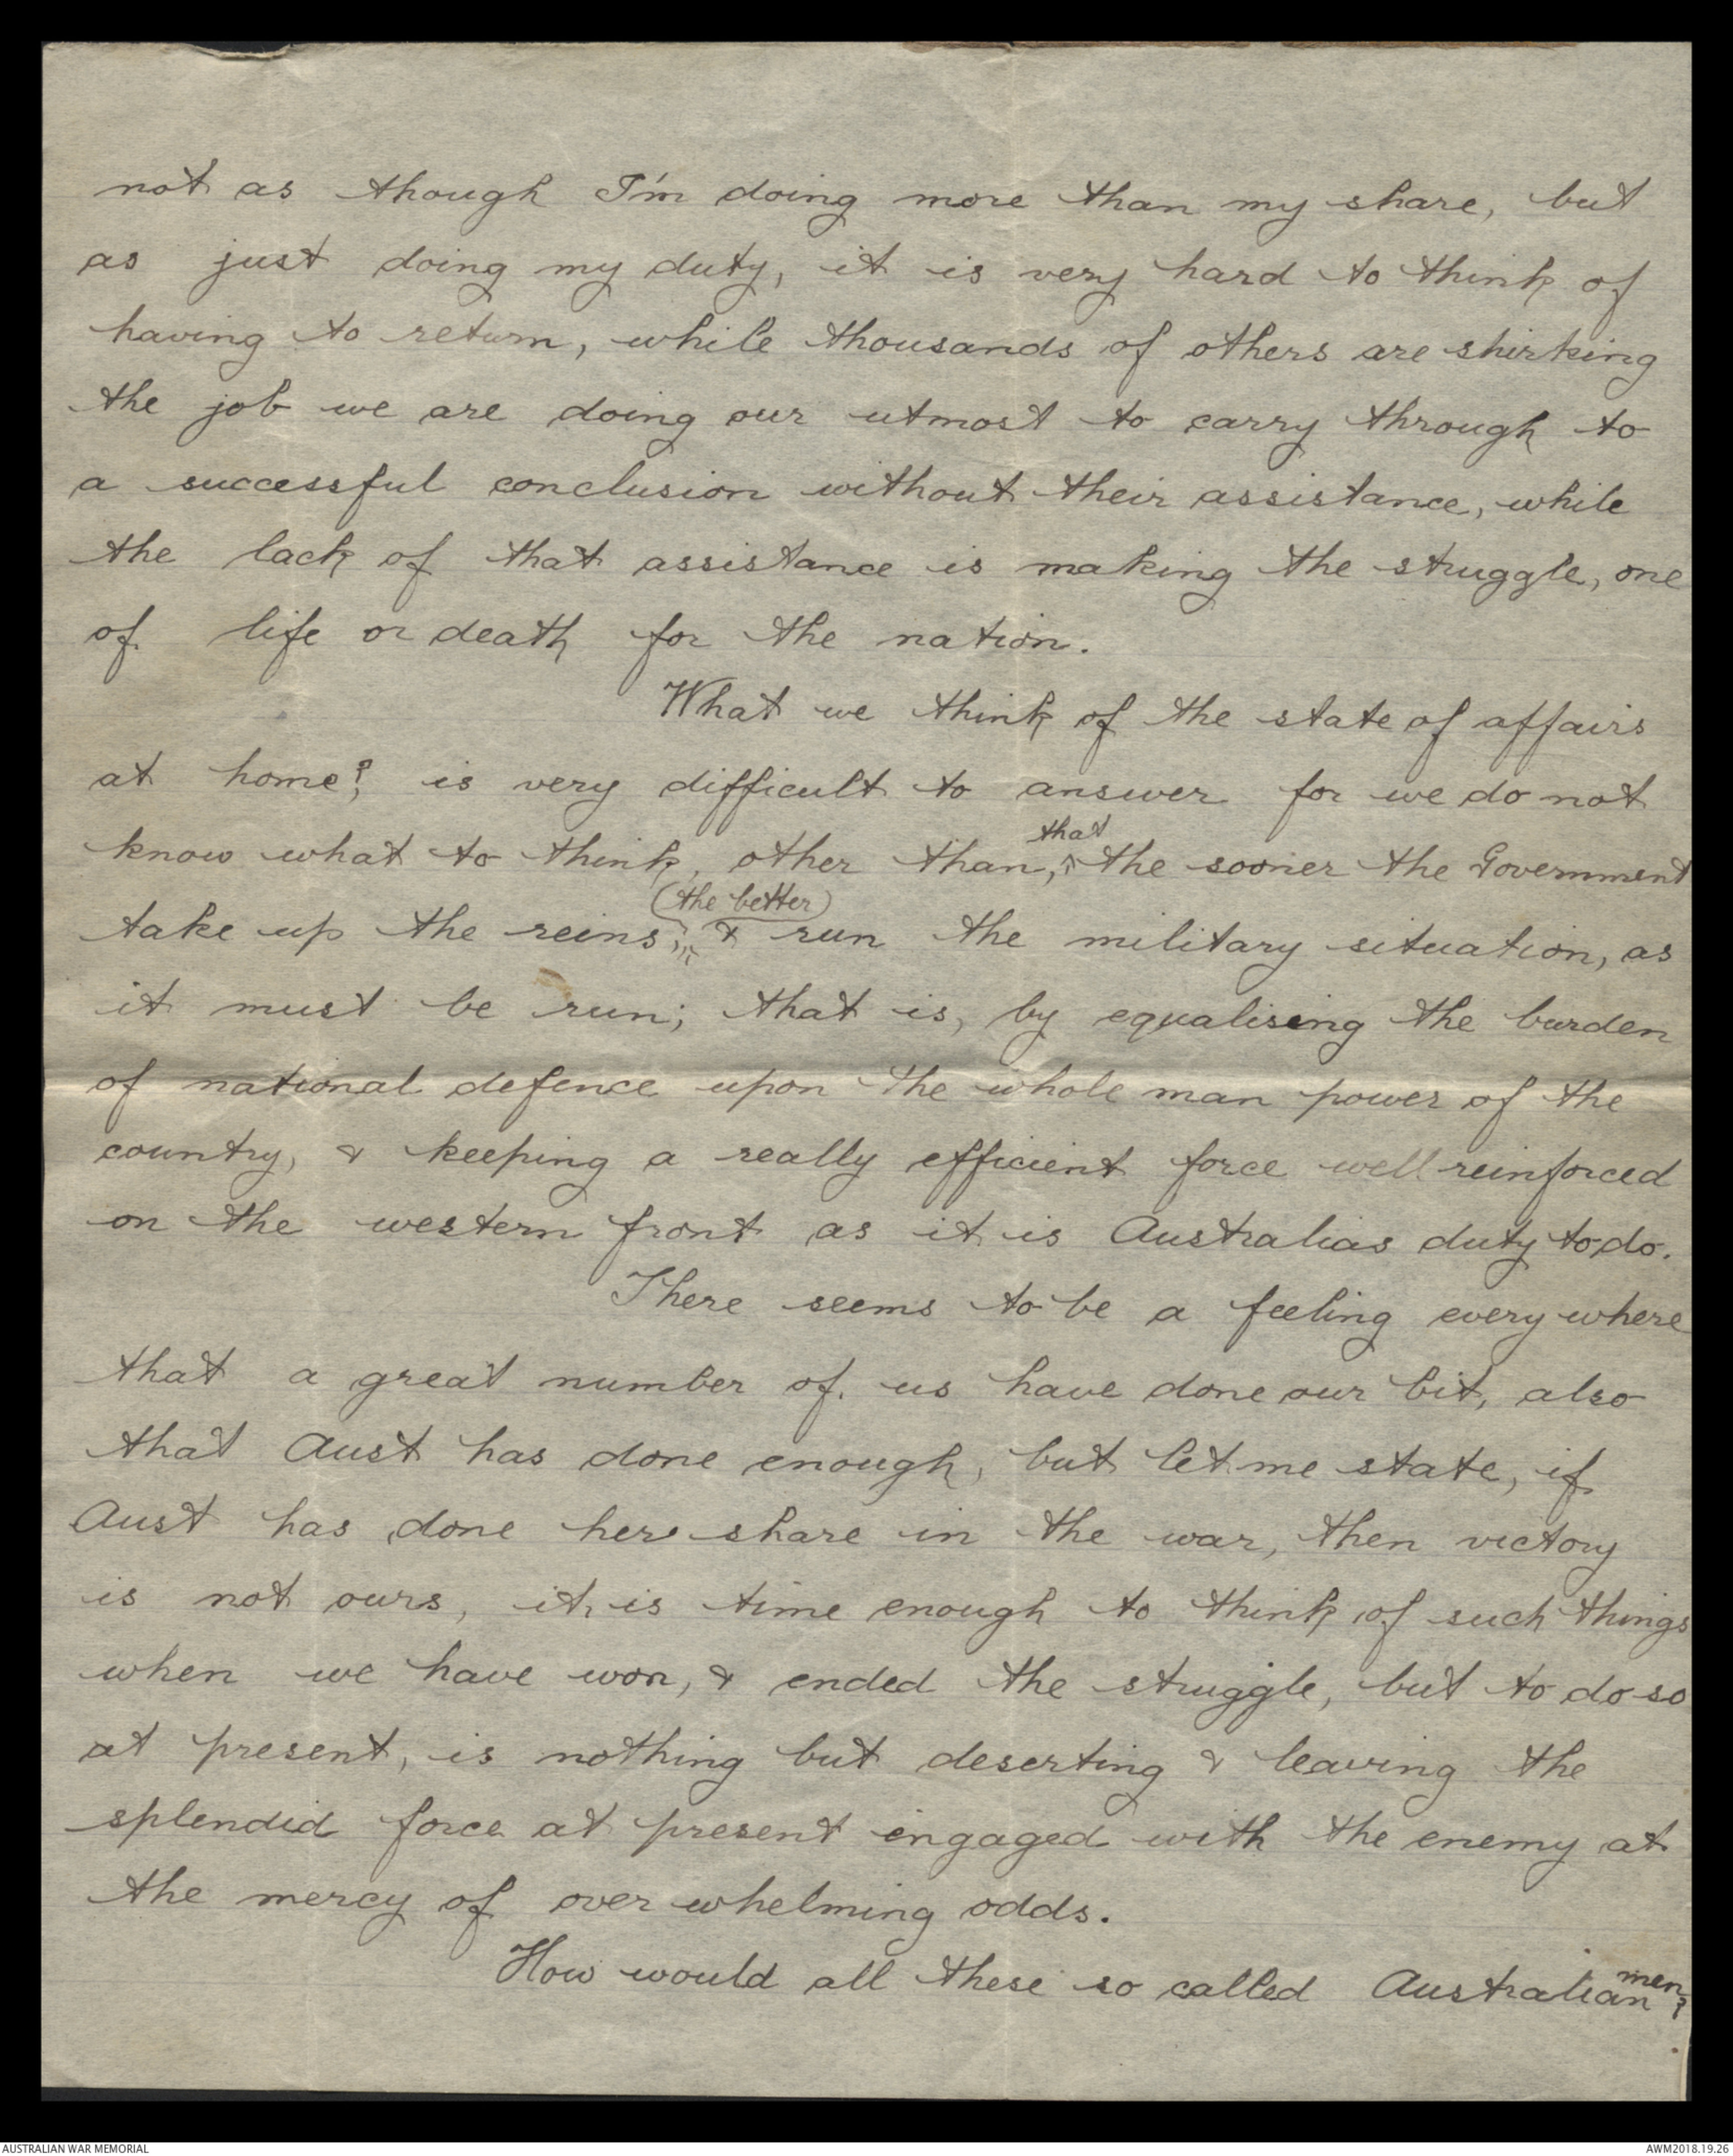 not as though I'm doing more than my share, but
as just doing my duty, it is very hard to think of
having to return, while thousands of others are shirking
the job we are doing our utmost to carry through to
a successful conclusion without their assistance, while
the lack of that assistance is making the struggle, one
of life or death for the nation.
What we think of the state of affairs
at home? is very difficult to answer for we do not
know what to think, other than, that the sooner the Government
take up the reins, (the better) & run the military situation, as
it must be run; that is, by equalising the burden
of national defence upon the whole man power of the
country, & keeping a really efficient force well reinforced
on the western front as it is Australias duty to do.
There seems to be a feeling every where
that a great number of us have done our bit, also
that Aust has done enough, but let me state, if
Aust has done her share in the war, then victory
is not ours, it is time enough to think of such things
when we have won, & ended the struggle, but to do so
at present, is nothing but deserting & leaving the
splendid force at present engaged with the enemy at
the mercy of over whelming odds.
How would all these so called Australian men?
AUSTRALIAN WAR MEMORIAL
AWM2018.19.26